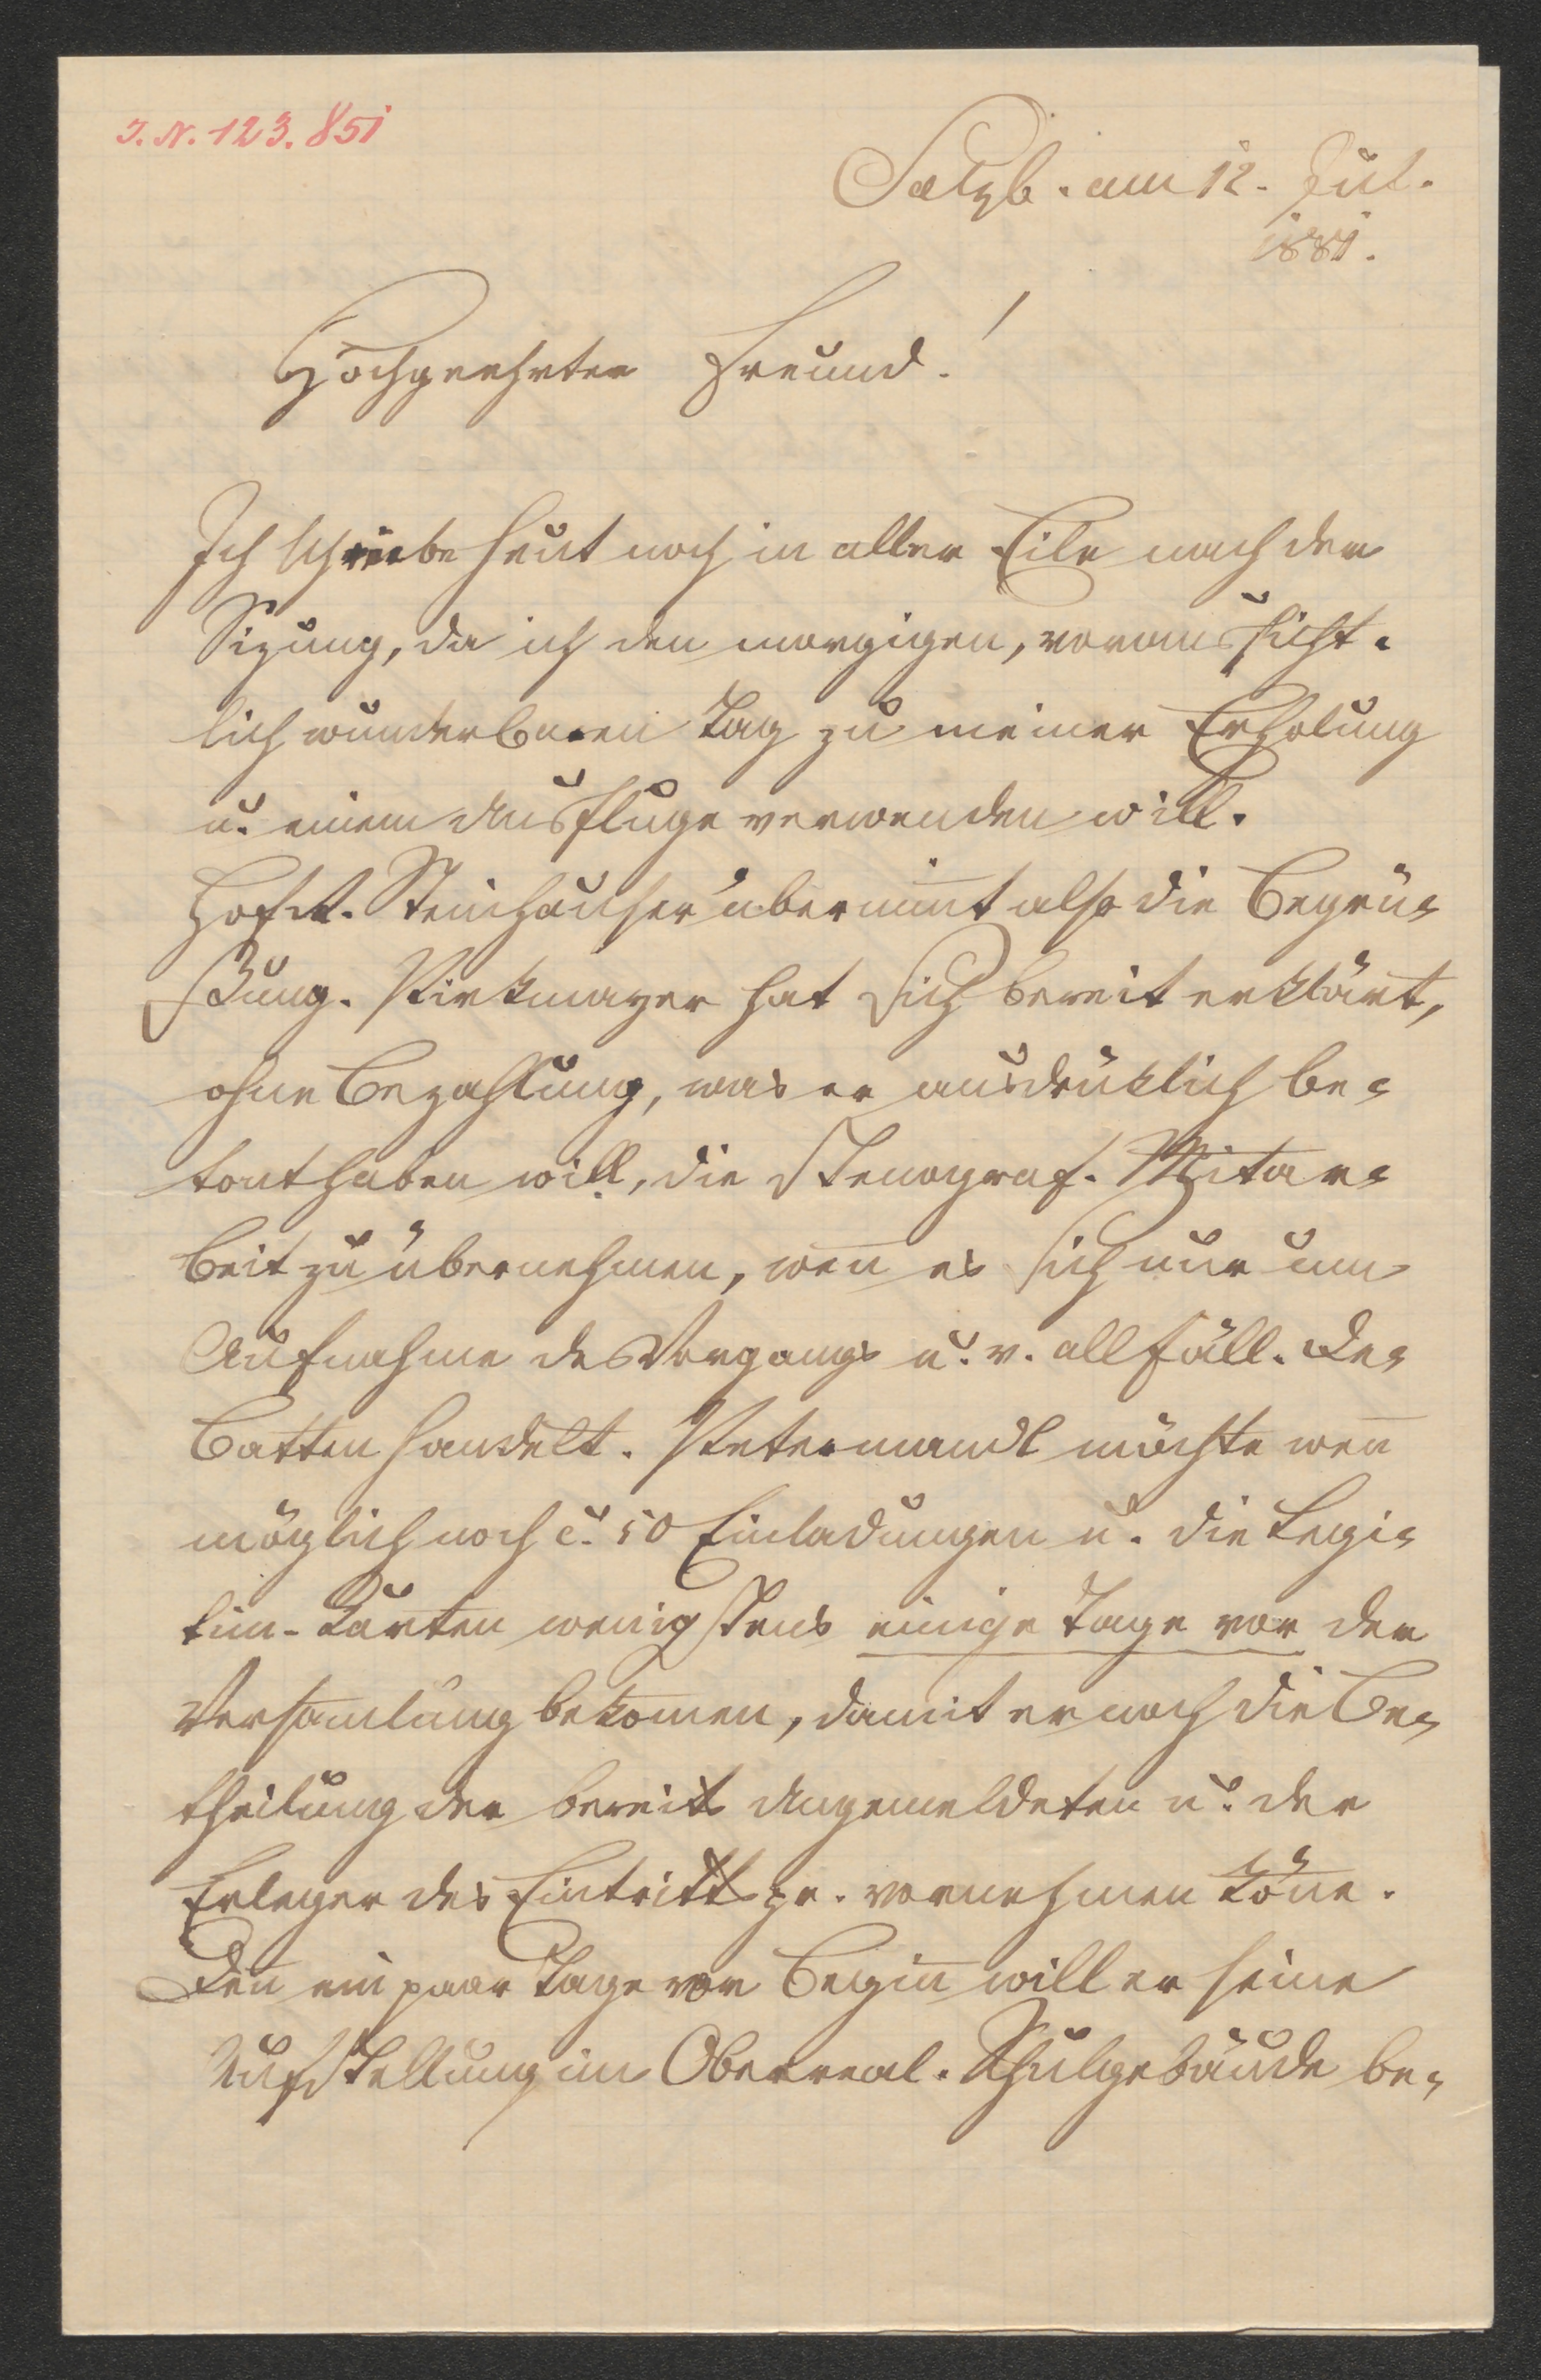 I. N. 123.851
Salzb. am 12. Jul.
1881.
Hochgeehrter Freund!
Ich schreibe heut noch in aller Eile nach der
Sizung, da ich den morgigen, voraussicht-
lich wunderbaren Tag zu meiner Erholung
u. einem Ausfluge verwenden will.
Hofrt. Steinhauser übernim̅t also die Begrü-
ßung. Pirkmayer hat sich bereit erklärt,
ohne Bezahlung, was er ausdrüklich be-
tont haben will, die Stenograf. Mitar-
beit zu übernehmen, wen̅ es sich nur um
Aufnahme des Vorgangs u. v. allfäll. De-
batten handelt. Petermandl möchte wen̅
möglich noch c. 50 Einladungen u. die Legi-
tim-Karten wenigstens einige Tage vor der
Versam̅lung bekom̅en, damit er noch die Be-
theilung der bereits Angemeldeten u. der
Erleger des Eintrittspr. vornehmen kön̅e.
Den̅ ein paar Tage vor Begin̅ will er seine
Aufstellung im Oberreal-Schulgebäude be-